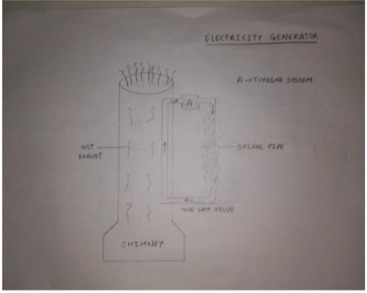 ELECTRICITY GENERATOR
A → TURBINE SYSTEM
A
HOT
EXHAUST
SPIRAL PIPE
ONE WAY VALVE
CHIMNEY